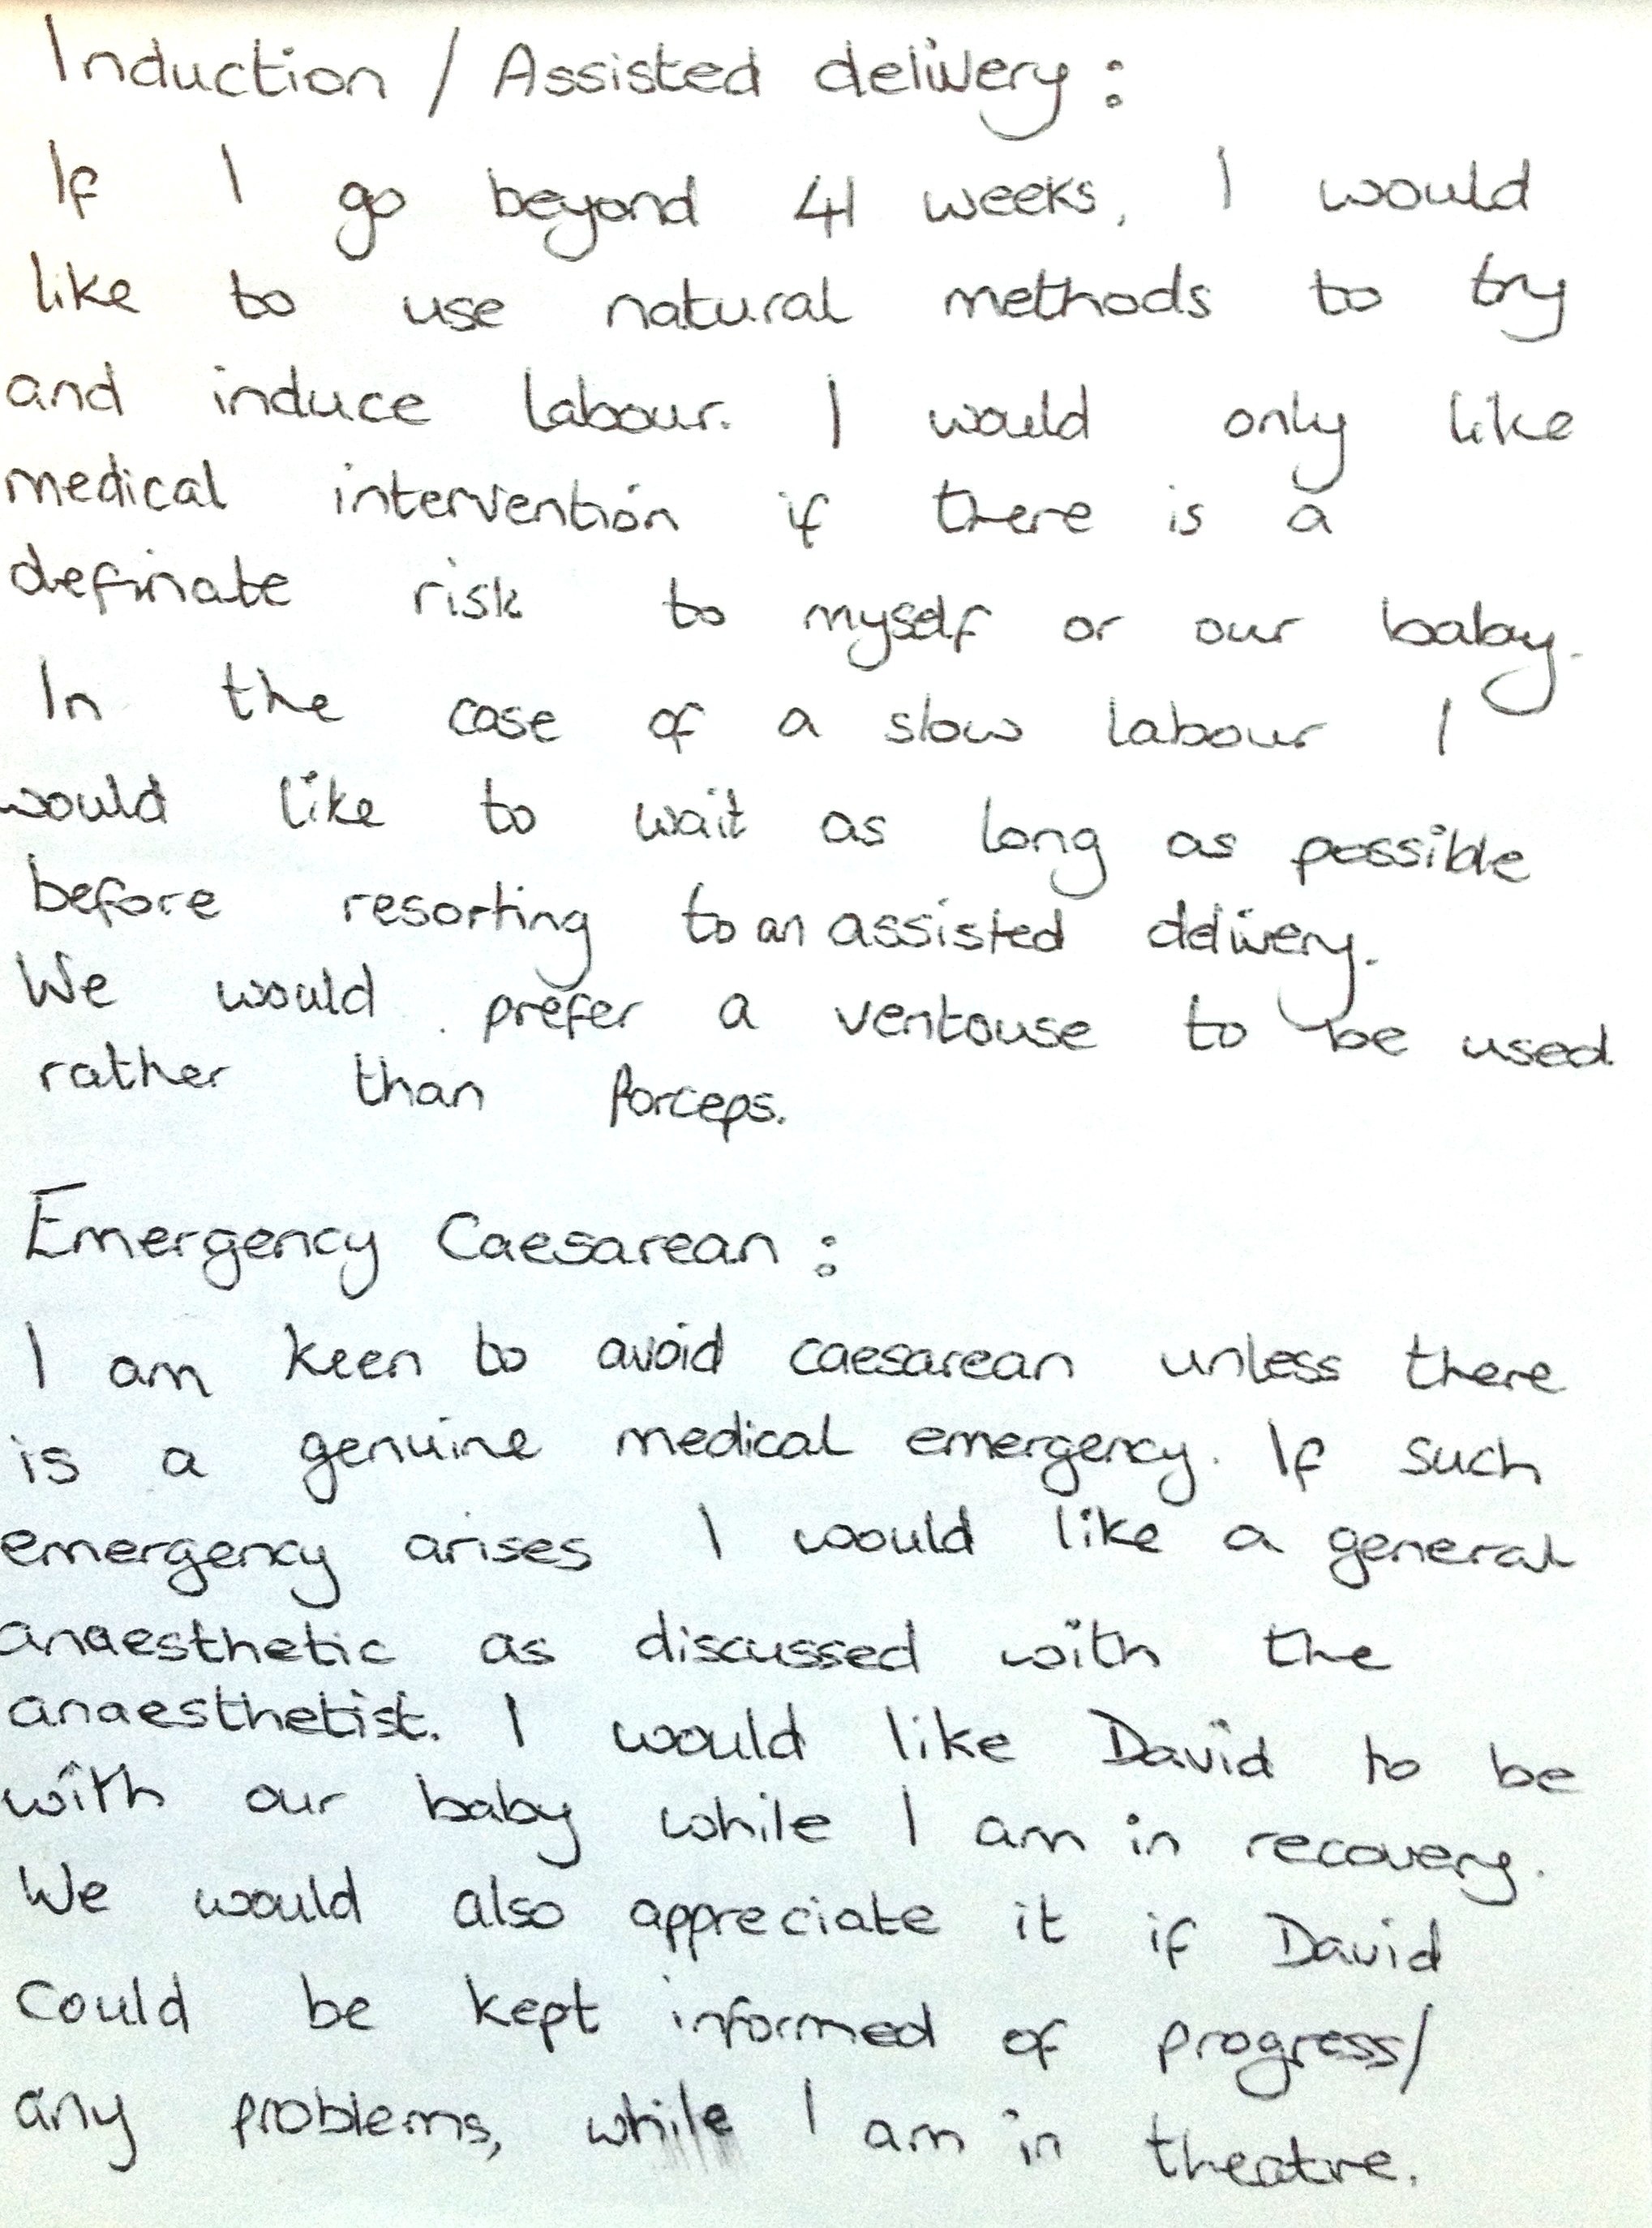 Induction / Assisted delivery :
If I go beyond 41 weeks, I would
like to use natural methods to try
and induce labour. I would only like
medical intervention if there is a
definate risk to myself or our baby.
In the case of a slow labour I
would like to wait as long as possible
before resorting to an assisted delivery.
We would prefer a ventouse to be used
rather than forceps.
Emergency Caesarean :
I am keen to avoid caesarean unless there
is a genuine medical emergency. If such
emergency arises I would like a general
anaesthetic as discussed with the
anaesthetist. I would like David to be
with our baby while I am in recovery.
We would also appreciate it if David
could be kept informed of progress/
any problems, while I am in theatre.